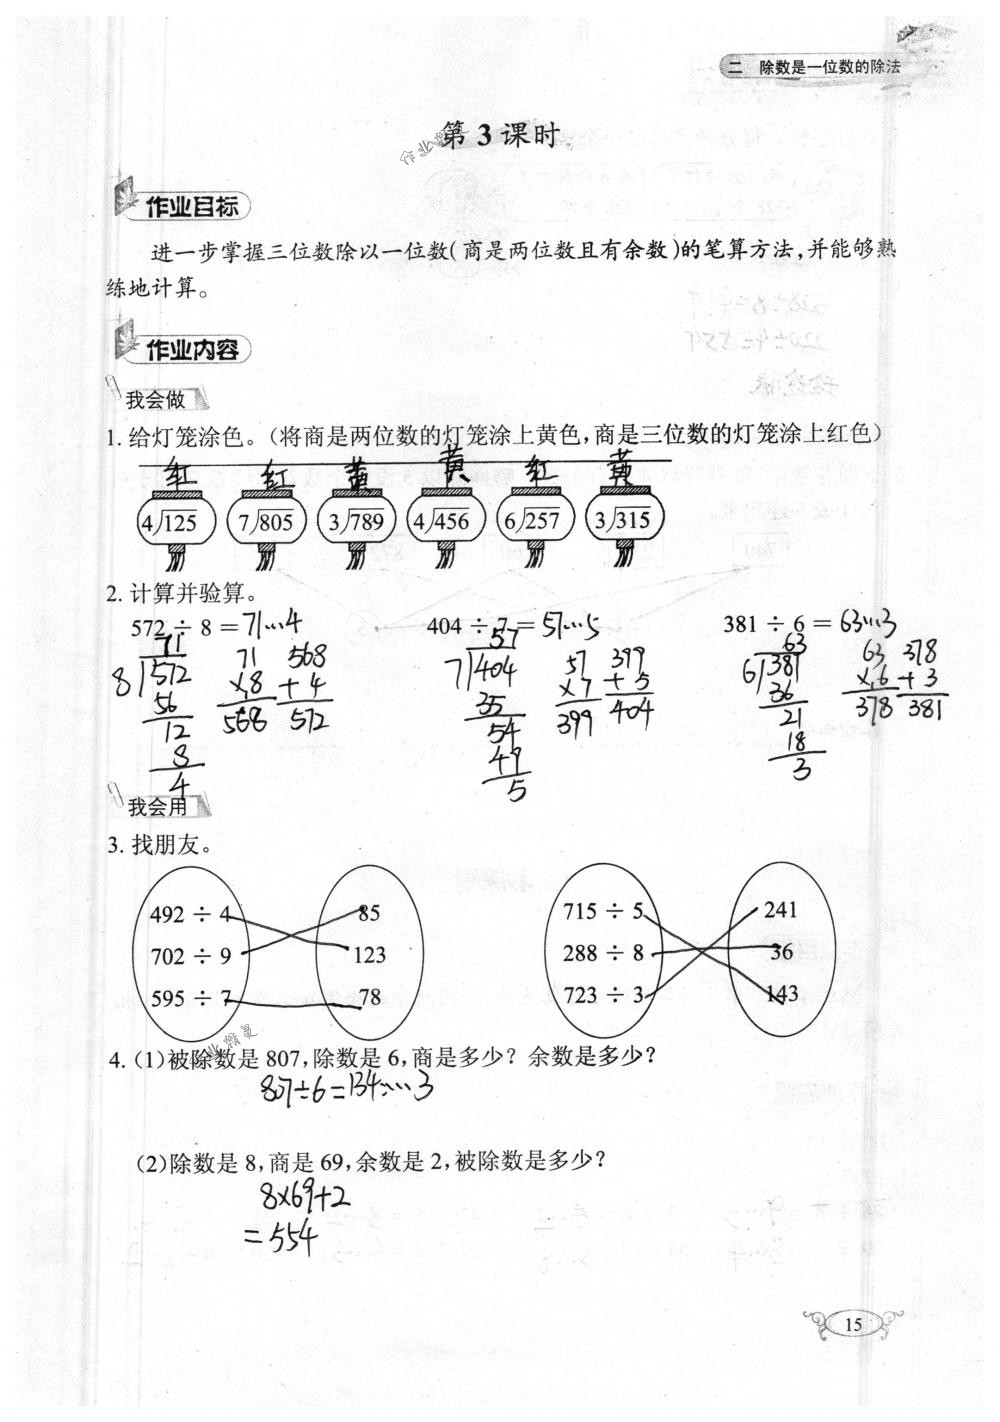 二 除数是一位数的除法
第 3 课时
作业目标
进一步掌握三位数除以一位数(商是两位数且有余数)的笔算方法,并能够熟
练地计算。
作业内容
我会做
1. 给灯笼涂色。(将商是两位数的灯笼涂上黄色,商是三位数的灯笼涂上红色)
红 红 黄 黄 红 黄
4)125 7)805 3)789 4)456 6)257 3)315
2. 计算并验算。
572 ÷ 8 = 71…4 404 ÷ 7 = 57…5 381 ÷ 6 = 63…3
71 57 63
8)572 71 568 7)404 57 399 6)381 63 378
56 ×8 + 4 35 ×7 + 5 36 ×6 + 3
12 568 572 54 399 404 21 378 381
8 49 18
4 5 3
我会用
3. 找朋友。
492 ÷ 4 85 715 ÷ 5 241
702 ÷ 9 123 288 ÷ 8 36
595 ÷ 7 78 723 ÷ 3 143
作业精灵
4. (1)被除数是 807,除数是 6,商是多少? 余数是多少?
807÷6=134……3
(2)除数是 8,商是 69,余数是 2,被除数是多少?
8×69+2
=554
15